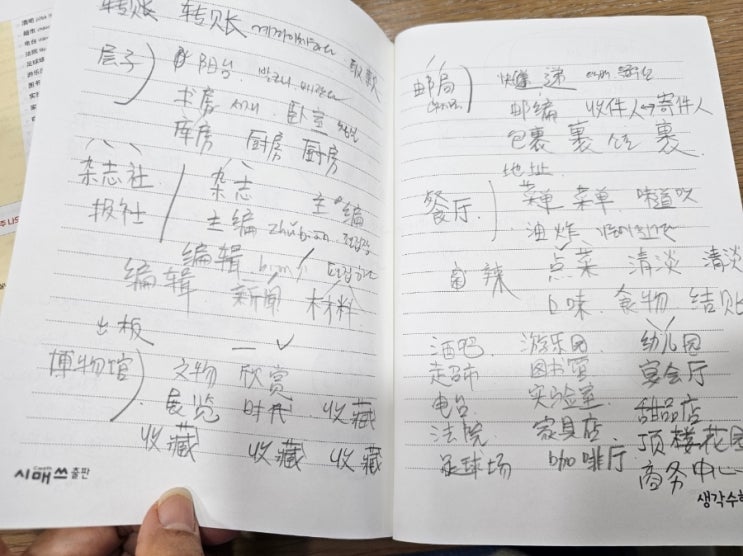 转账 转账 계좌이체하다 取款
层子) 阳台 발코니, 베란다
书房 서재 卧室 침실
库房 厨房 厨房
杂志社 杂志 主编
报社 主编 zhǔbiān 편집장
编辑 편집하다
编辑 新闻 材料
出板
博物馆) 文物 欣赏
展览 时代 收藏
收藏 收藏 收藏
시매쓰출판
邮局 快递
邮编 收件人↔寄件人
包裹 裹 裹
地址
餐厅. 菜单 菜单 味道
油炸
辣 点菜 清淡 清淡
口味 食物 结账
酒吧 游乐园 幼儿园
超市 图书馆 宴会厅
电台 实验室 甜品店
法院 家具店 顶楼花园
足球场 咖啡厅 商务中心
생각수